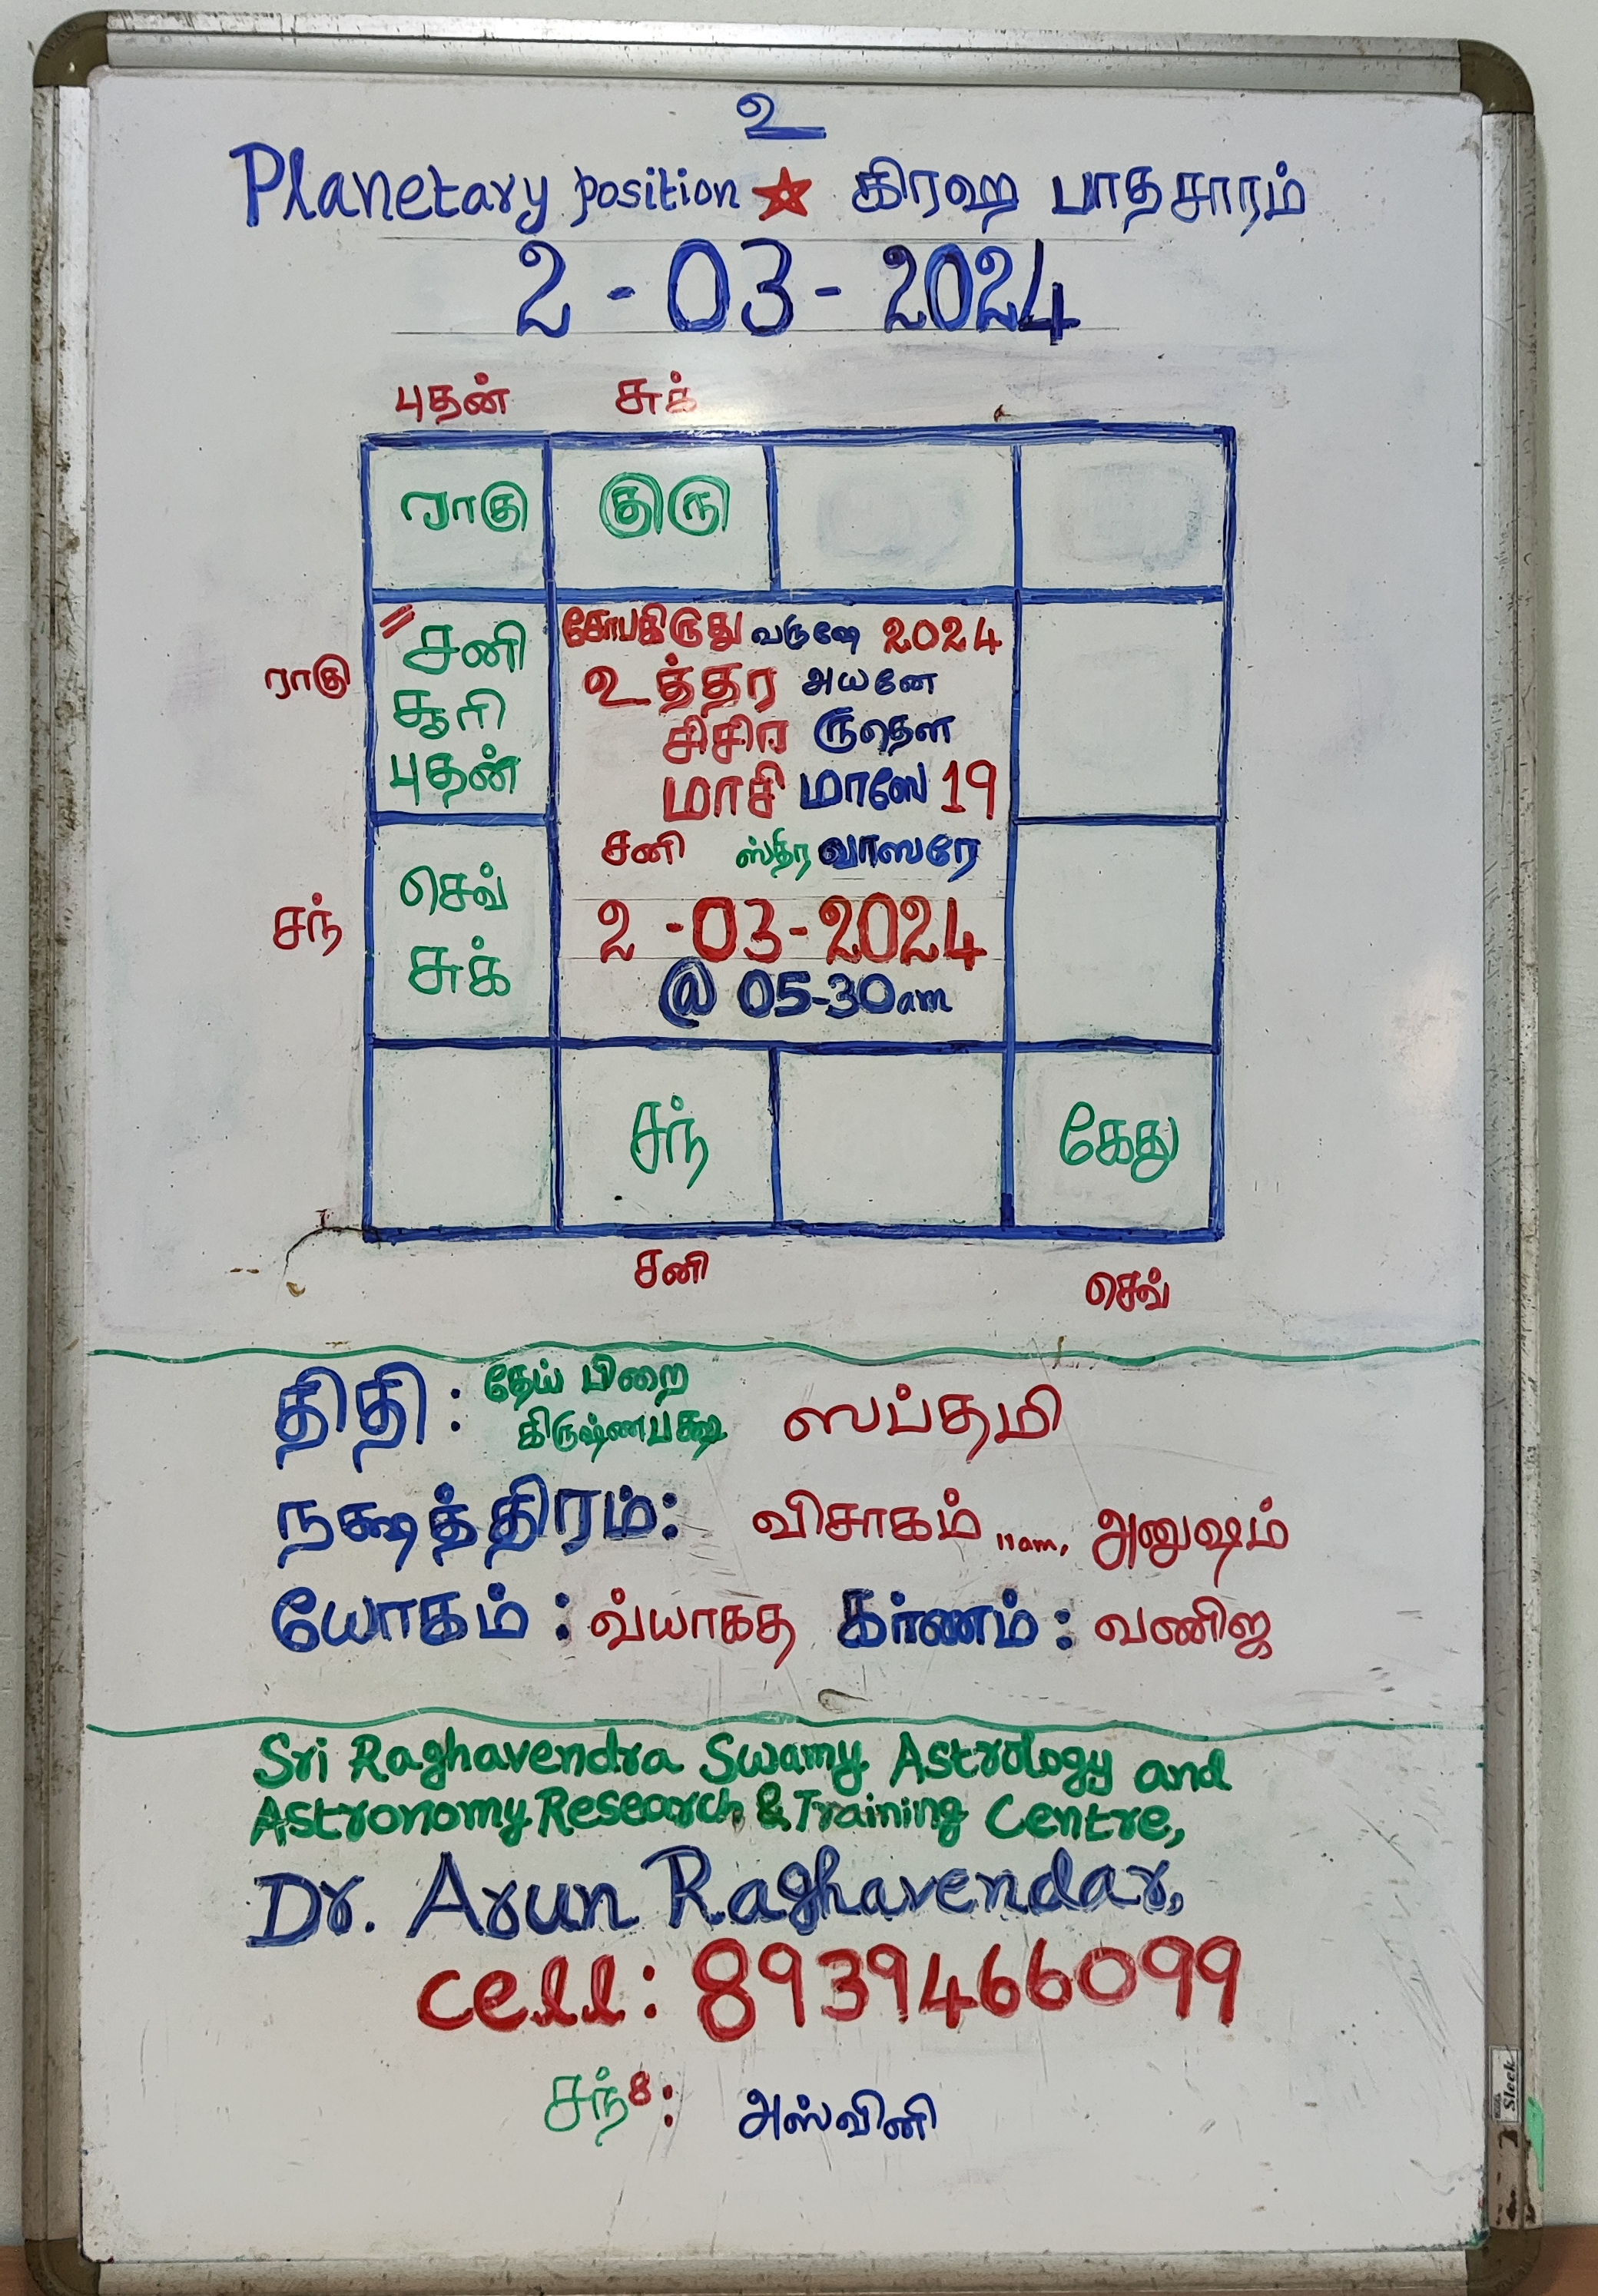 உ
Planetary position கிரஹ பாதசாரம்
2 - 03 - 2024
புதன் சுக்
ராகு குரு
சனி
சூரி
புதன்
ராகு
கோபகிருது வருஷே 2024
உத்தர அயனே
சிசிர ருதௌ
மாசி மாஸே 19
சனி ஸ்திர வாஸரே
2 - 03 - 2024
@ 05-30am
செவ்
சுக்
சந்
சந் கேது
சனி செவ்
திதி : தேய் பிறை
கிருஷ்ணபக்ஷ ஸப்தமி
நக்ஷத்திரம்: விசாகம் 11am, அனுஷம்
யோகம் : வ்யாகத கர்ணம் : வணிஜ
Sri Raghavendra Swamy Astrology and
Astronomy Research & Training Centre,
Dr. Arun Raghavendar,
cell: 8939466099
சந் 8: அஸ்வினி
Sleek